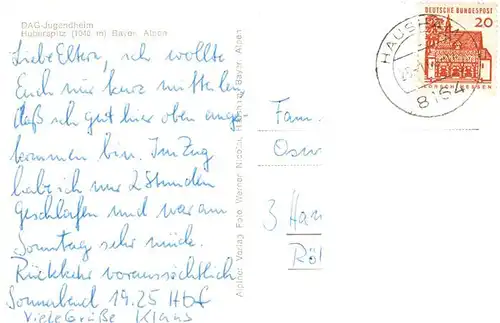 DAG-Jugendheim
Huberspitz (1048 m) Bayer. Alpen
Liebe Eltern, ich wollte
Euch nur kurz mitteilen,
daß ich gut hier oben ange-
kommen bin. Im Zug
habe ich nur 2 Stunden
geschlafen und war am
Sonntag sehr müde.
Rückkehr voraussichtlich
Sonnabend 19.25 Hbf
Viele Grüße Klaus
Alpiner Verlag Foto Werner Hausham / Bayer. Alpen
DEUTSCHE BUNDESPOST
20
LORSCH/HESSEN
HAUSHAM
8164
Fam.
Osw
3 Han
Röl